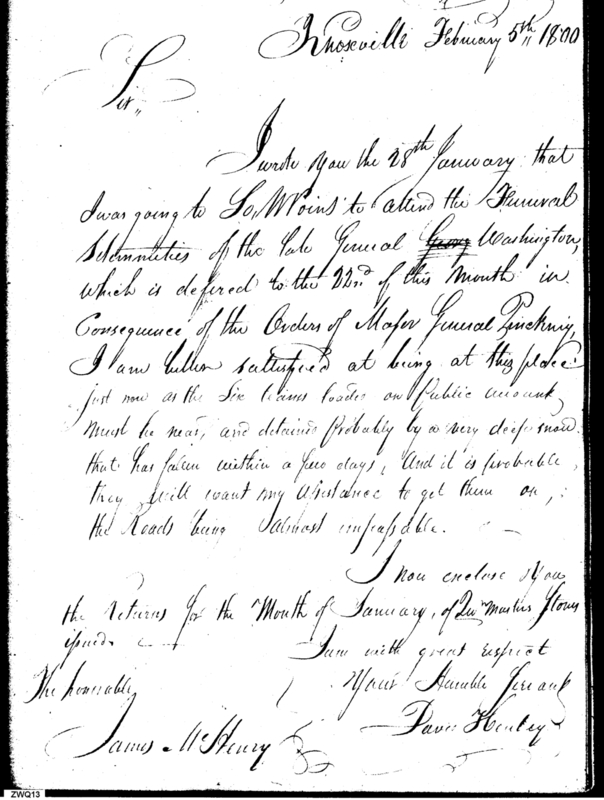 Knoxville February 5th 1800
Sir,,
I wrote you the 28th January that
I was going to So, W Point to attend the Funeral
Solemnities of the late General Georg Washington,
which is defered to the 22nd of this Month in
Consequence of the Orders of Major General Pinckney,
I am better satisfied at being at this place
just now as the Six teams loaded on Public account,
must be near, and detained Probably by a very deep snow
that has fallen within a few days, And it is probable,
they will want my assistance to get them on,
the Roads being almost impassable.
I now enclose You
the returns for the Month of January, of Qur Masters Stores
issued.
I am with great respect
Your Humble Servant
The honorable
David Henley
James McHenry
ZWQ13